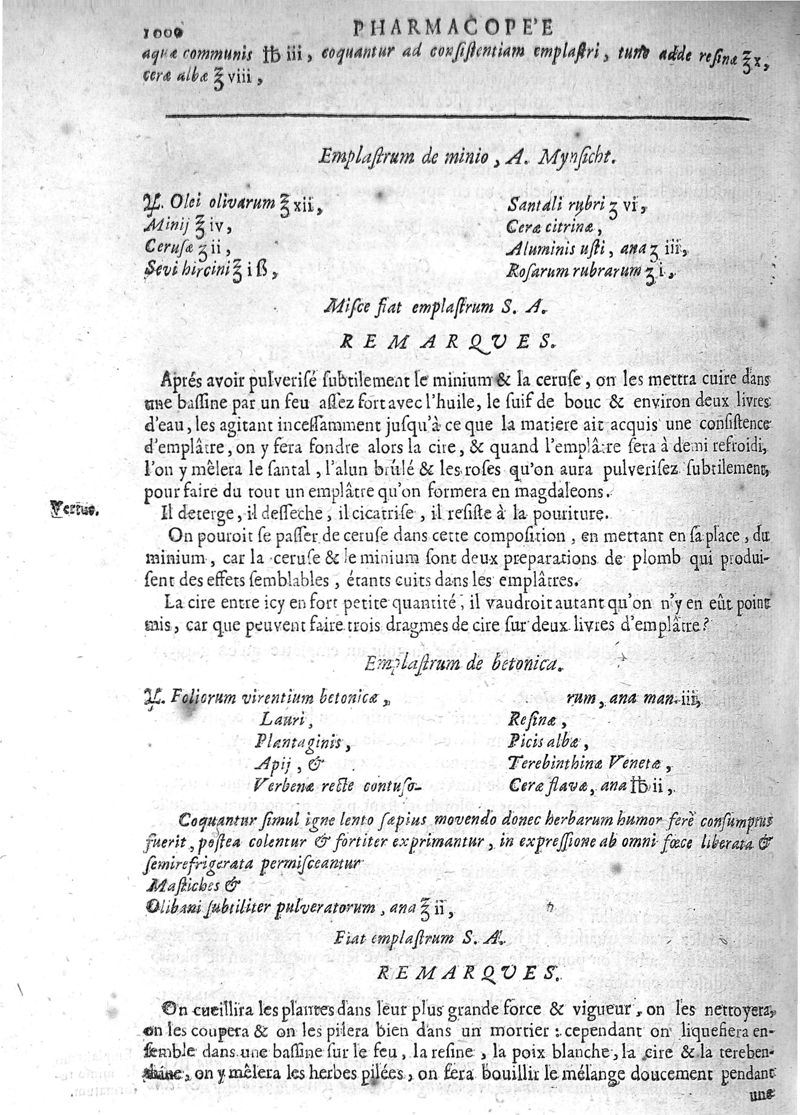 1000 PHARMACOPE'E
aquæ communis ℔ iii, coquantur ad consistentiam emplastri, tunc adde resinæ ℥x,
ceræ albæ ℥viii,
Emplastrum de minio, A. Mynsicht.
♃. Olei olivarum ℥xii,
Minij ℥iv,
Cerusæ ℥ii,
Sevi hircini ℥i ß,
Santali rubri ʒ vi,
Ceræ citrinæ,
Aluminis usti, ana ʒ iii,
Rosarum rubrarum ʒ i,
Misce fiat emplastrum S. A.
REMARQUES.
Aprés avoir pulverisé subtilement le minium & la ceruse, on les mettra cuire dans
une bassine par un feu assez fort avec l'huile, le suif de bouc & environ deux livres
d'eau, les agitant incessamment jusqu'à ce que la matiere ait acquis une consistence
d'emplâtre, on y fera fondre alors la cire, & quand l'emplâtre sera à demi refroidi,
l'on y mêlera le santal, l'alun brûlé & les roses qu'on aura pulverisez subtilement,
pour faire du tout un emplâtre qu'on formera en magdaleons.
Vertus.
Il deterge, il desseche, il cicatrise, il resiste à la pouriture.
On pouroit se passer de ceruse dans cette composition, en mettant en sa place, du
minium, car la ceruse & le minium sont deux preparations de plomb qui produi-
sent des effets semblables, étants cuits dans les emplâtres.
La cire entre icy en fort petite quantité, il vaudroit autant qu'on n'y en eût point
mis, car que peuvent faire trois dragmes de cire sur deux livres d'emplâtre?
Emplastrum de betonica.
♃. Foliorum virentium betonicæ,
Lauri,
Plantaginis,
Apij, &
Verbenæ recte contuso-
rum, ana man. iii,
Resinæ,
Picis albæ,
Terebinthinæ Venetæ,
Ceræ flavæ, ana ℔ ii,
Coquantur simul igne lento sæpius movendo donec herbarum humor ferè consumptus
fuerit, postea colentur & fortiter exprimantur, in expressione ab omni fæce liberata &
semirefrigerata permisceantur
Mastiches &
Olibani subtiliter pulveratorum, ana ℥ii,
Fiat emplastrum S. A.
REMARQUES.
On cueillira les plantes dans leur plus grande force & vigueur, on les nettoyera,
on les coupera & on les pilera bien dans un mortier : cependant on liquefiera en-
semble dans une bassine sur le feu, la resine, la poix blanche, la cire & la tereben-
thine, on y mêlera les herbes pilées, on fera bouillir le mélange doucement pendant
une